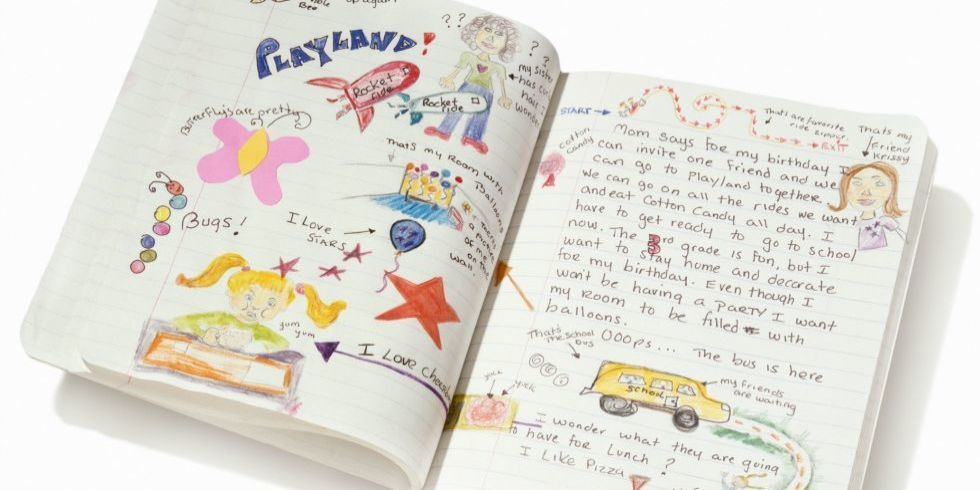 up again
Bee
PLAYLAND!
??
?
?
my sister
has curly
hair I
wonder
Rocket
ride
Rocket
ride
Butterflys are pretty
thats my room with
Balloons
theres
a picture
of me
on the
wall.
Bugs!
I LOVE
STARS
yum
yum
I LOVE
START
Thats are favorite
ride zinger.
EXIT
Thats my
friend
Krissy
cotton
candy
Mom says for my birthday I
can invite one friend and we
can go to Playland together.
We can go on all the rides we want
and eat Cotton Candy all day. I
have to get ready to go to school
now. The 3rd grade is fun, but I
want to stay home and decorate
for my birthday. Even though I
won't be having a PARTY I want
my room to be filled with
balloons.
Thats
the school
bus
OOOps... The bus is here
SCHOOL
my friends
are waiting
yuck
I wonder what they are going
to have for Lunch?
I Like Pizza